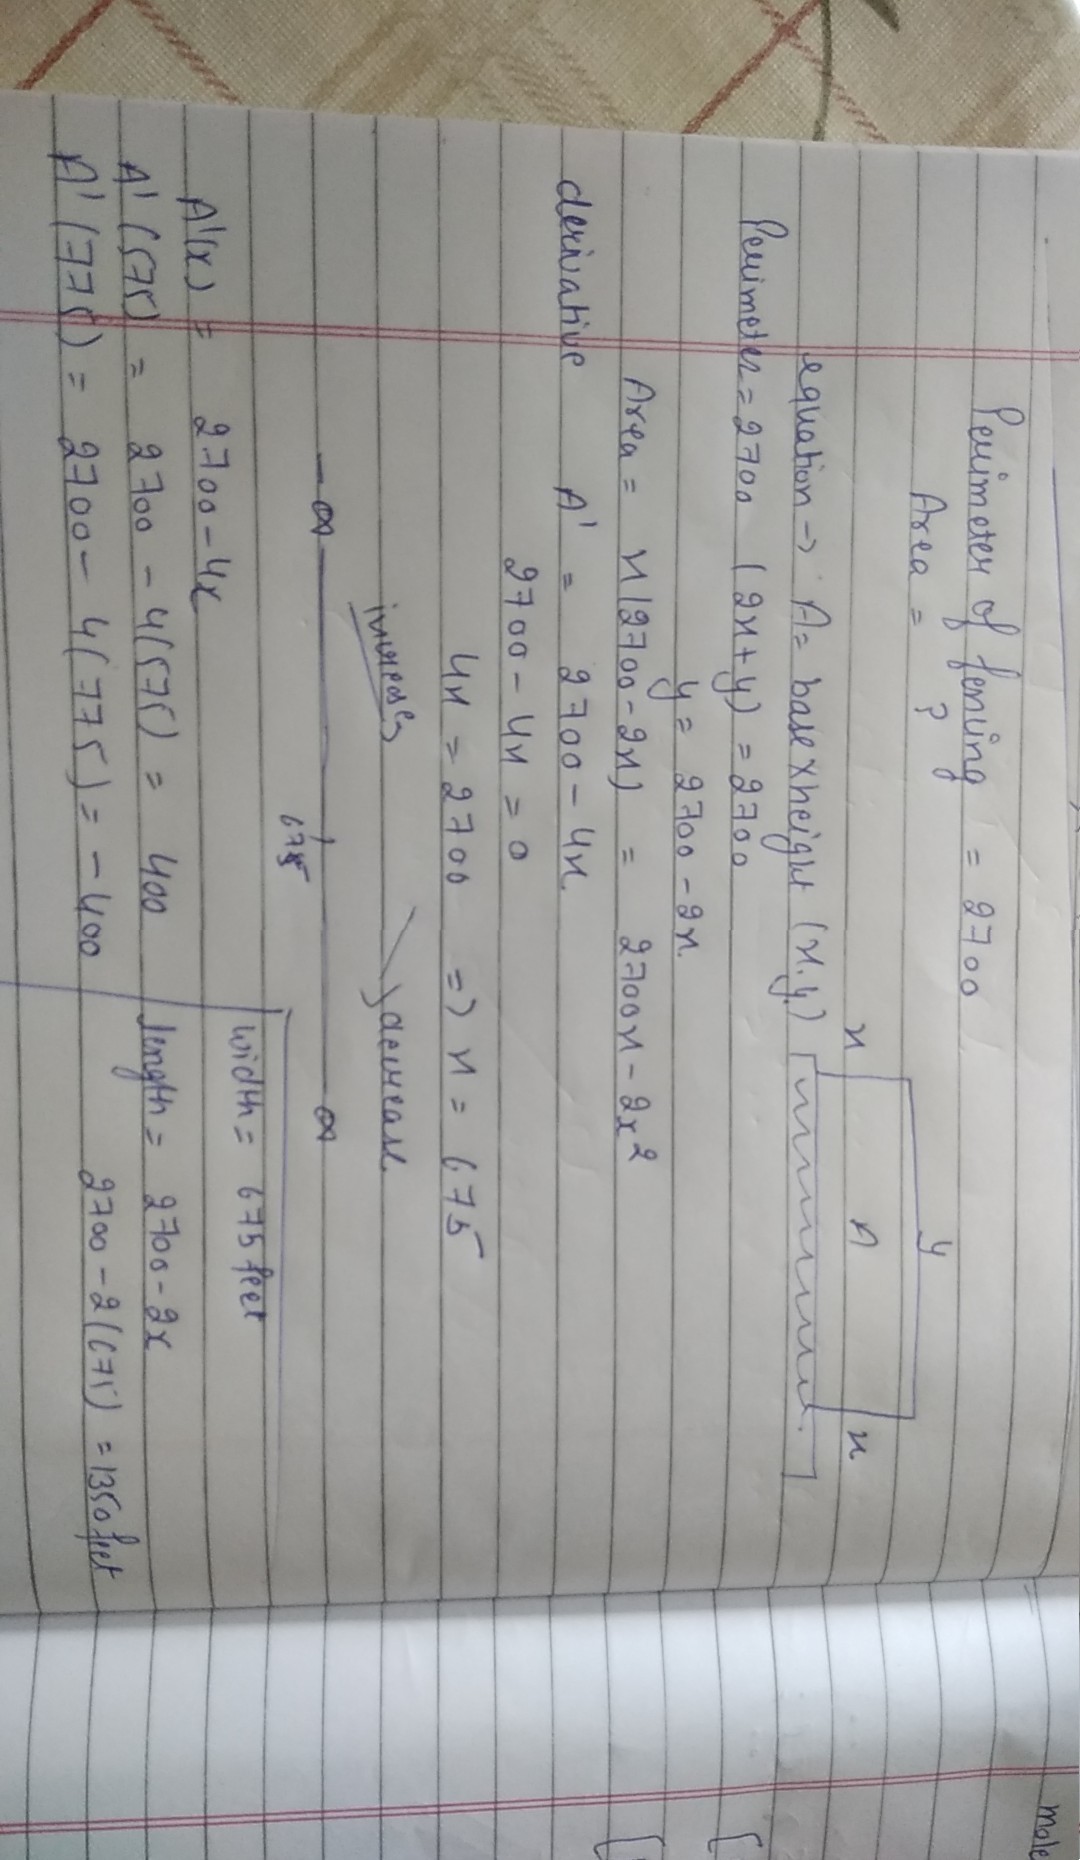 Perimeter of fencing = 2700
Area = ?
x y x
A
equation → A = base x height (x.y.)
Perimeter = 2700 (2x + y) = 2700
y = 2700 - 2x.
Area = x(2700 - 2x) = 2700x - 2x²
derivative A' = 2700 - 4x.
2700 - 4x = 0
4x = 2700 => x = 675
increases decrease.
-∞ 675 ∞
A'(x) = 2700 - 4x
A'(575) = 2700 - 4(575) = 400
A'(775) = 2700 - 4(775) = -400
width = 675 feet
length = 2700 - 2x
2700 - 2(675) = 1350 feet
mole